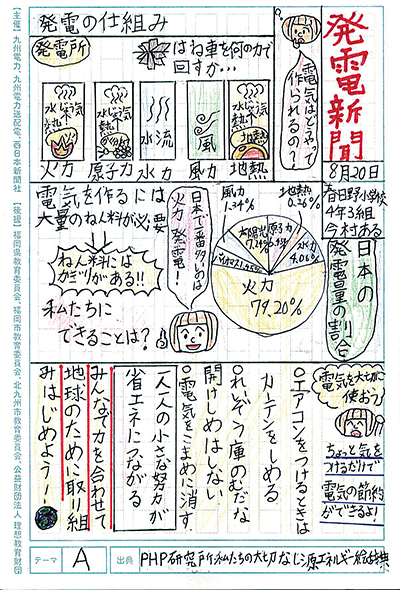 発電新聞
8月20日
春日野小学校
4年3組
今村ある
電気はどうやって
作られるの？
発電の仕組み
発電所
はね車を何の力で
回すか…
水じょう気
熱
水じょう気
熱
水流
風
水じょう気
地熱
火力
原子力
水力
風力
地熱
日本の
発電量の割合
風力
1.34%
地熱
0.26%
太陽光
原子力
水力
4.06%
バイオマス
火力
79.20%
日本で一番多いのは
火力発電！
電気を作るには
大量のねん料が必要
ねん料には
かぎりがある!!
私たちに
できることは？
電気を大切に
使おう！
ちょっと気を
つけるだけで
電気の節約
ができるよ！
○エアコンをつけるときは
カーテンをしめる。
○れいぞう庫のむだな
開けしめはしない
○電気をこまめに消す。
一人一人の小さな努力が
省エネにつながる
みんなで力を合わせて
地球のために取り組
みはじめよう！
テーマ
A
出典
PHP研究所 私たちの大切なし源エネルギー
【主催】九州電力、九州電力送配電、西日本新聞社
【後援】福岡県教育委員会、福岡市教育委員会、北九州市教育委員会、公益財団法人 理想教育財団